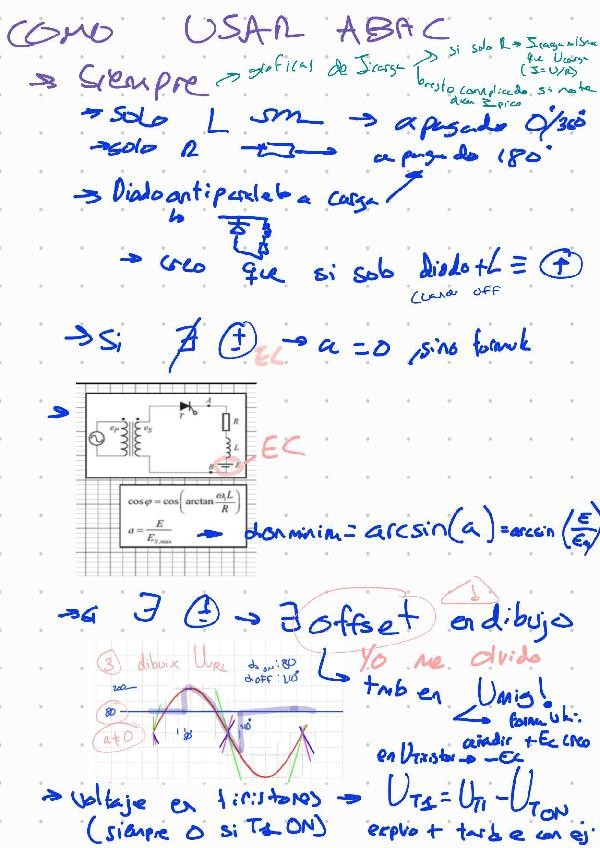 COMO USAR ABAC
→ Siempre → graficas de Icarga → si solo R → Icarga misma que Ucarga (I=U/R)
→ solo L → apagado 0°/360°
→ solo R → apagado 180°
→ Diodo antiparalelo a carga
→ creo que si solo Diodo+L ≡ ↑
cuando OFF
→ Si ∄ → a = 0, sino formula
EC
A
T
R
L
E
B
e_P
e_S
EC
cosφ = cos(arctan ω₁L/R)
a = E/E_S,max → αon minim = arcsin(a) = arcsin(E/
→ Si ∃ → ∃ offset en dibujo
Yo me olvido
3 dibuix U_RL
α_ON: 80
α_OFF:
200
80
a≠0
tmb en Umig!
formula
añadir + Ec creo
en Utiristor → -EC
→ Voltaje en tiristores → U_T1 = U_TI - U_TON
(siempre 0 si T1 ON) explico + tarde con ej.